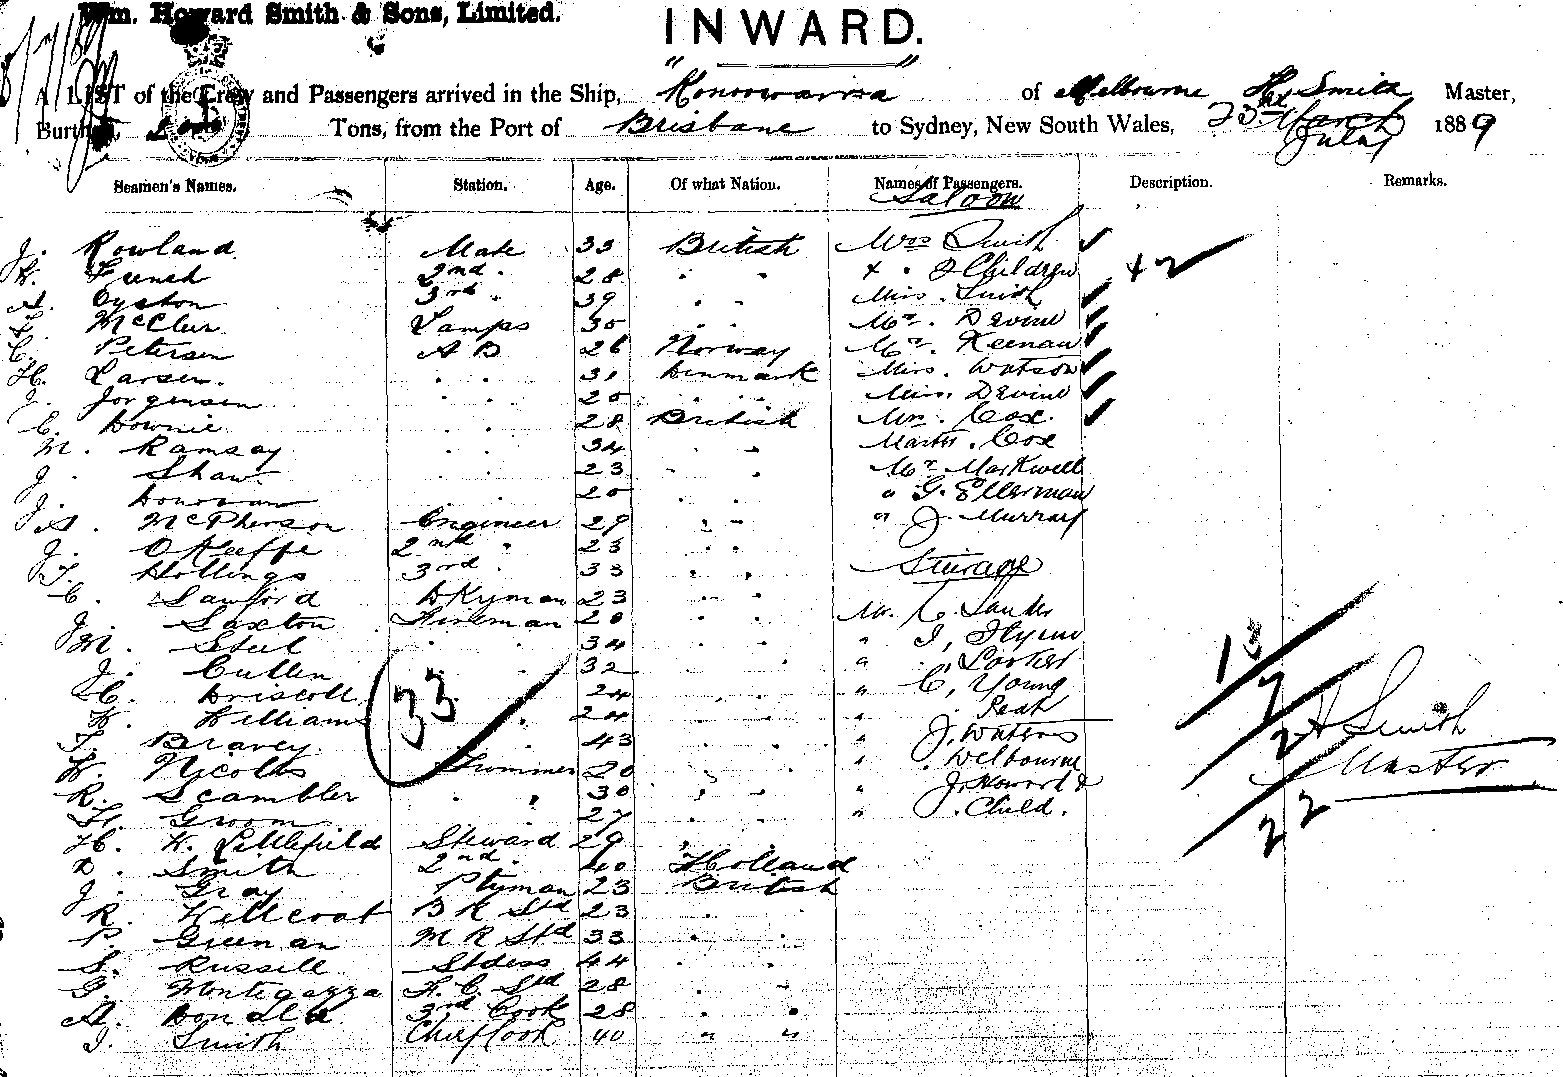 Wm. Howard Smith & Sons, Limited.
INWARD.
A LIST of the Crew and Passengers arrived in the Ship, "Konoowarra" of Melbourne H. Smith Master,
Burthen, Tons, from the Port of Brisbane to Sydney, New South Wales, 23rd March July 1889
Seamen's Names. Station. Age. Of what Nation. Names of Passengers. Description. Remarks.
Saloon
J. Rowland Mate 33 British Mrs Smith
W. French 2nd " 28 " " + " 2 Children +2
A. Oyston 3rd " 39 " " Miss. Smith
McClur Lamps 35 " " Mr. Devine
C. Petersen A B 26 Norway Mr. Keenan
H. Larsen. " " 31 Denmark Mrs. Watson
J. Jorgensen " " 25 " " Miss. Devine
C. Downie " " 28 British Mrs. Cox.
M. Ramsay " " 34 " " Master. Cox
J. Shaw " " 23 " " Mr Markwell
J. Donovan " " 20 " " " G. Ellerman
J.A. McPherson Engineer 29 " " " J. Murray
J. O'Keeffe 2nd " 23 " "
T. Hollings 3rd " 33 " " Steerage
C. Sanford Dkyman 23 " " Mr. C.
J. Saxton Fireman 20 " " " Flynn
M. Steel " " 34 " " " Parker
J. Cullen " 32 " " " C. Young
C. Driscoll 24 " " " Peat
W. Williams 24 " " " J. Waters
33
13
9
22
T. Bravey 43 " " " Welbourne
W. Nicolls Trimmer 20 " " " J. Howard &
R. Scambler " " 30 " " " Child.
H. Groom 27 " "
H. W. Littlefield Steward 29 " "
D. Smith 2nd " 40 Holland
J. Gray Ptyman 23 British
R. Willcoat B R Std 23 " "
P. Greenan M R Std 33 " "
S. Russell Stdess 44 " "
G. Montegazza F. C. Std 28 " "
A. Donald 3rd Cook 28 " "
J. Smith Chief Cook 40 " "
H Smith
Master
22